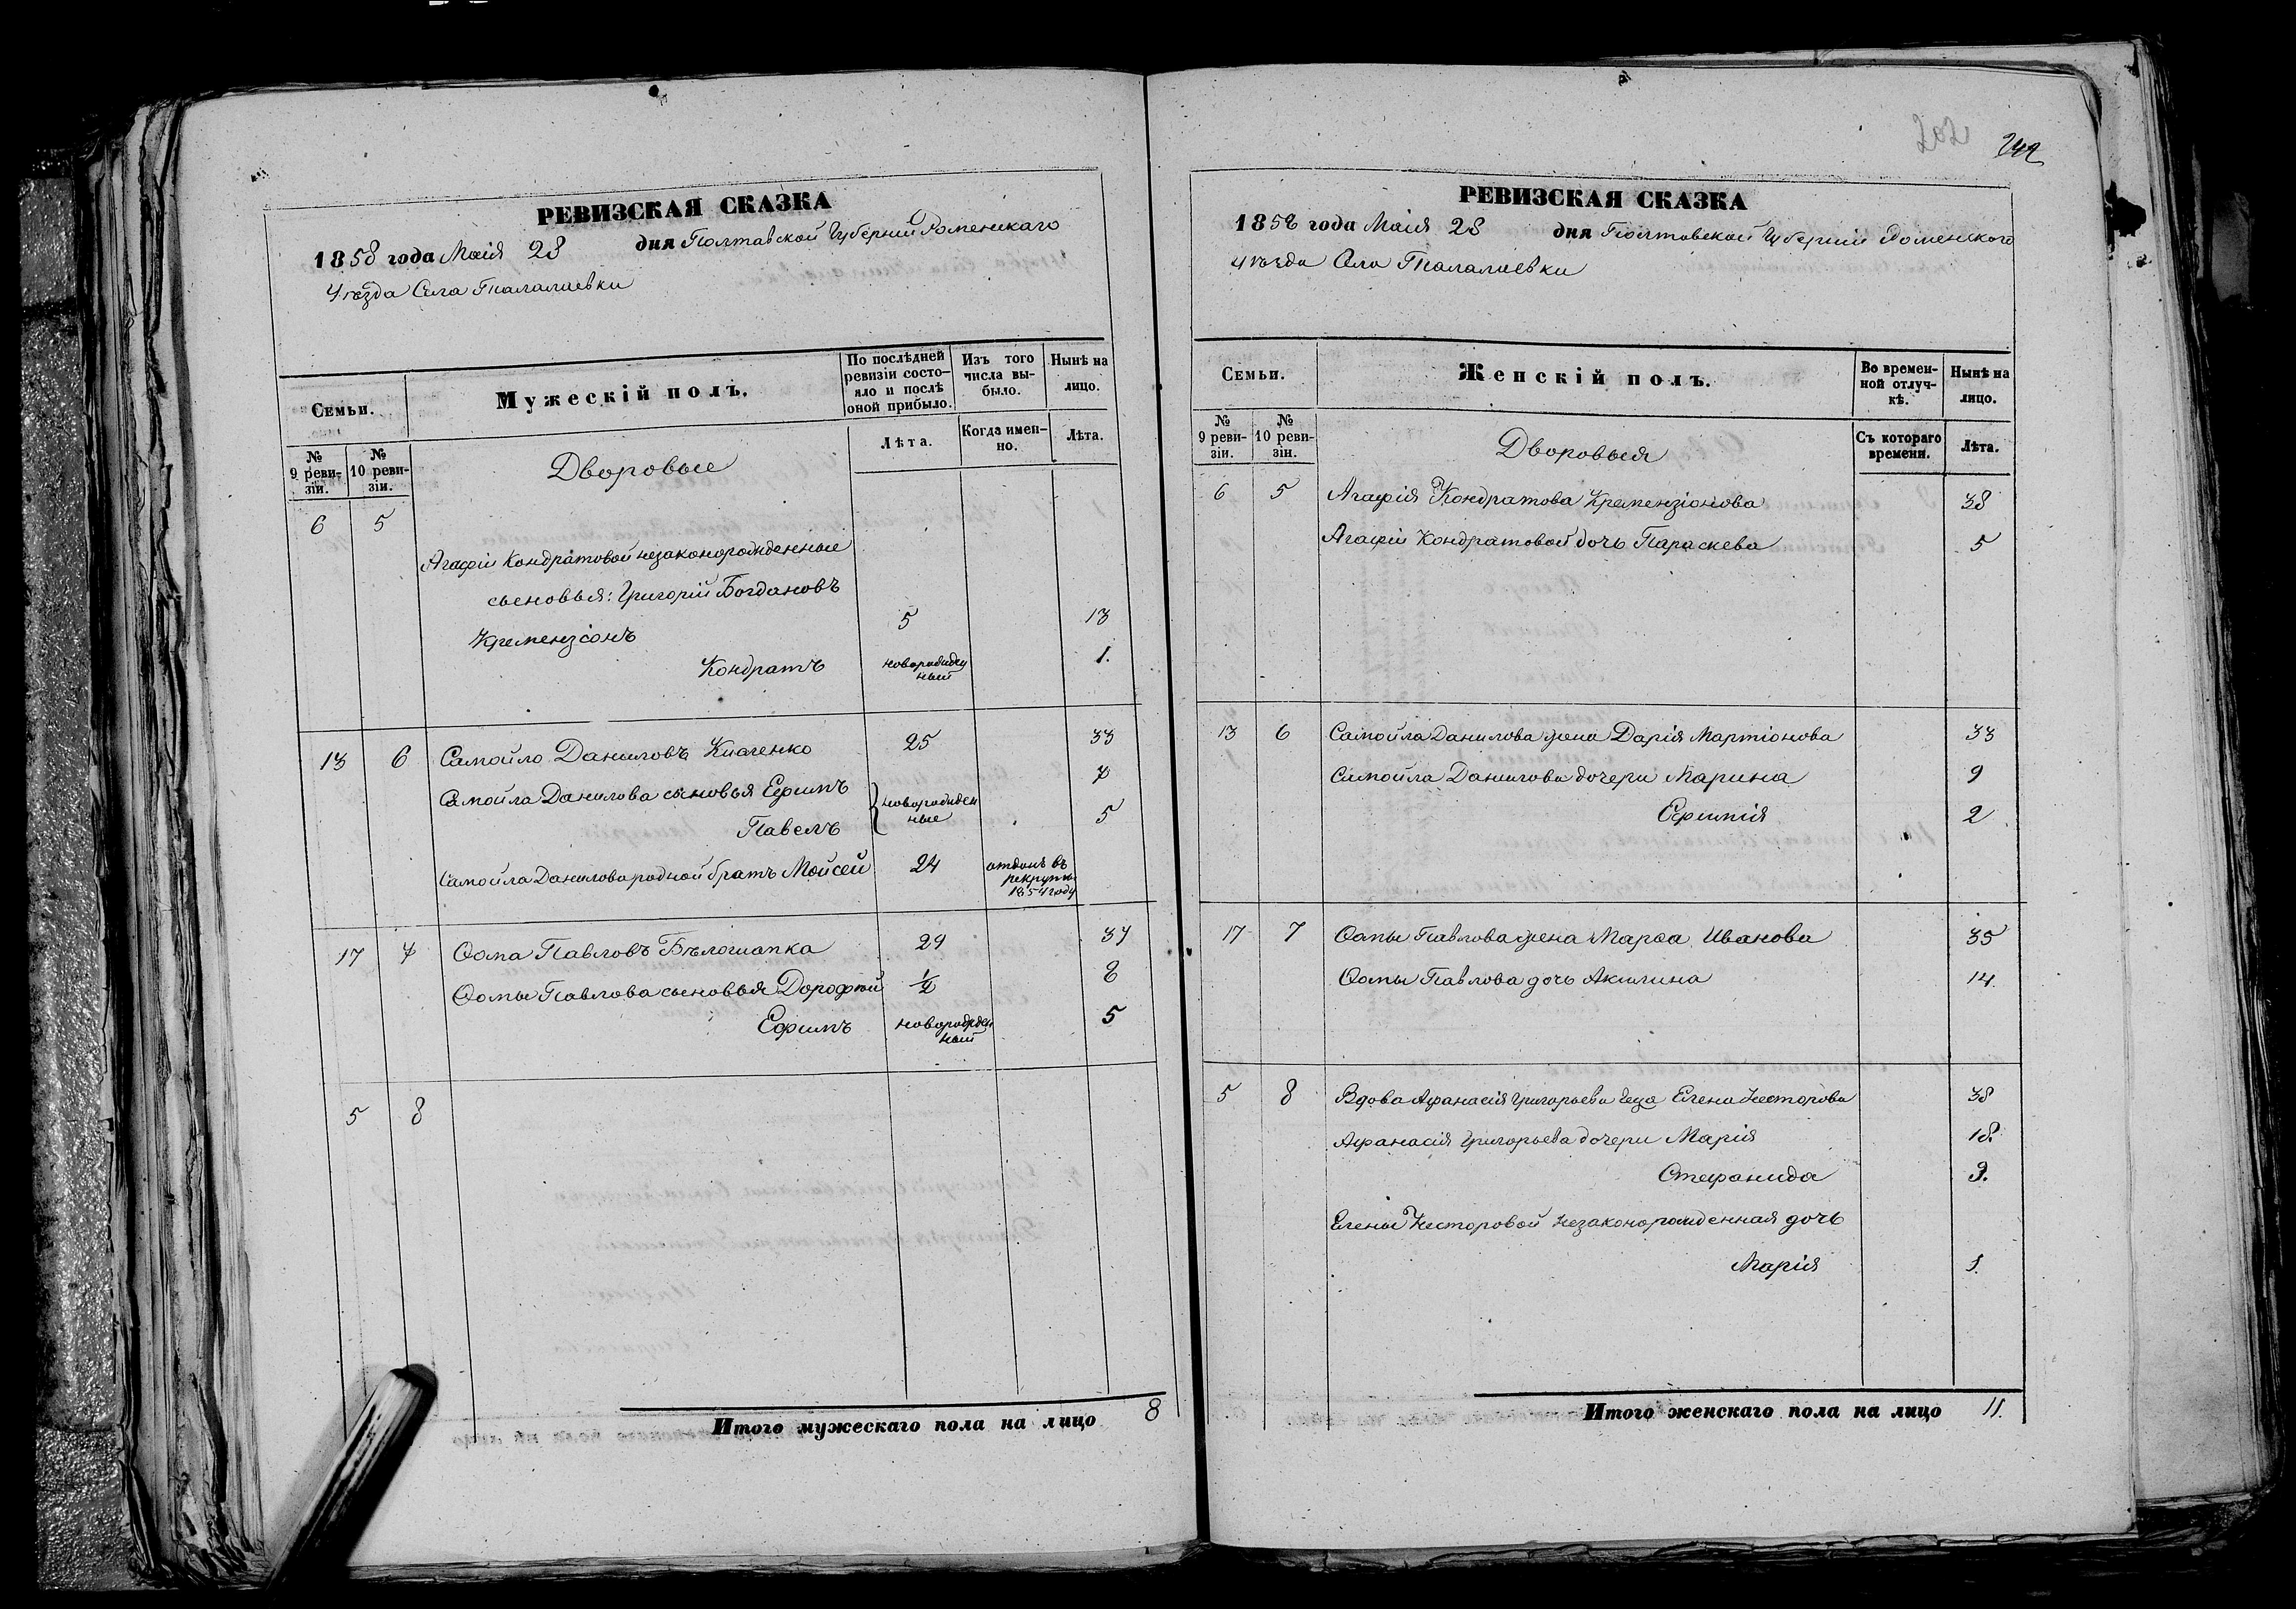 202
242
РЕВИЗСКАЯ СКАЗКА
1858 года Маія 28 дня Полтавской Губерніи Роменскаго
Уѣзда Села Талалаевки
Семьи.
Мужескій полъ.
По послѣдней ревизіи состояло и послѣ оной прибыло.
Изъ того числа выбыло.
Нынѣ на лицо.
№ 9 ревизіи.
№ 10 ревизіи.
Лѣта.
Когда именно.
Лѣта.
Дворовые
6 5
Агафіи Кондратовой незаконорожденные
сыновья: Григорій Богдановъ
Кремензіонъ 5 13
Кондратъ новорожденный 1.
13 6 Самойло Даниловъ Кпаченко 25 33
Самойла Данилова сыновья Ефимъ новорожденные 7
Павелъ 5
Самойла Данилова родной братъ Мойсей 24 отданъ въ рекруты 1854 году
17 7 Ѳома Павловъ Бѣлошапка 29 37
Ѳомы Павлова сыновья Дорофѣй 1/2 8
Ефимъ новорожденный 5
5 8
Итого мужескаго пола на лицо 8
РЕВИЗСКАЯ СКАЗКА
1858 года Маія 28 дня Полтавской Губерніи Роменского
Уѣзда Села Талалаевки
Семьи.
Женскій полъ.
Во временной отлучкѣ.
Нынѣ на лицо.
№ 9 ревизіи.
№ 10 ревизіи.
Съ котораго времени.
Лѣта.
Дворовыя
6 5 Агафія Кондратова Кремензіонова 38
Агафіи Кондратовой дочь Параскева 5
13 6 Самойла Данилова жена Дарія Мартіонова 33
Самойла Данилова дочери Марина 9
Ефимія 2
17 7 Ѳомы Павлова жена Марѳа Иванова 35
Ѳомы Павлова дочь Акилина 14.
5 8 Вдова Афанасія Григорьева Елена Несторова 38
Афанасія Григорьева дочери Марія 18.
Стефанида 9.
Елены Несторовой незаконорожденная дочь
Марія 1.
Итого женскаго пола на лицо 11.